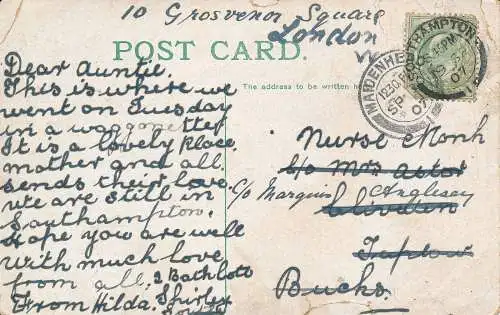 10 Grosvenor Square
London
W
POST CARD.
The address to be written here
SOUTHAMPTON
07
MAIDENHEAD
SP
07
Dear Auntie.
This is where we
went on Tuesday
in a waggonette
It is a lovely place
mother and all
sends their love
we are still in
Southampton.
Hope you are well
With much love
from all. 2 Bath Cots
From Hilda. Shirley
Nurse Monk
c/o Mrs Astor
c/o Marquis Anglesey
Cliveden
Taplow
Bucks.